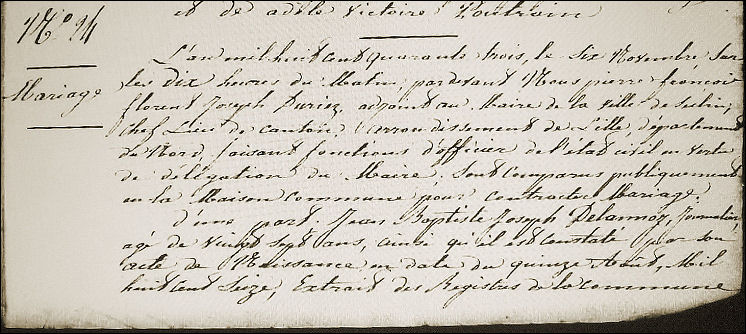 et de adèle victoire Poutrain
N.º 94
L'an mil huit cent quarante trois, le Six Novembre Sur
Mariage
les Dix heures du Matin, pardevant Nous pierre francois
florent Joseph Duriez, adjoint au Maire de la ville de Seclin,
chef Lieu de canton, arrondissement de Lille, département
du Nord, faisant fonctions d'officier de l'état civil en vertu
de délégation du Maire. Sont Comparus publiquement
en la Maison commune pour contracter Mariage.
d'une part, Jean Baptiste Joseph Delannoy, Journalier,
agé de vingt sept ans, ainsi qu'il est constaté par son
acte de Naissance, en date du quinze Août, Mil
huit cent Seize, Extrait des Registres de la commune